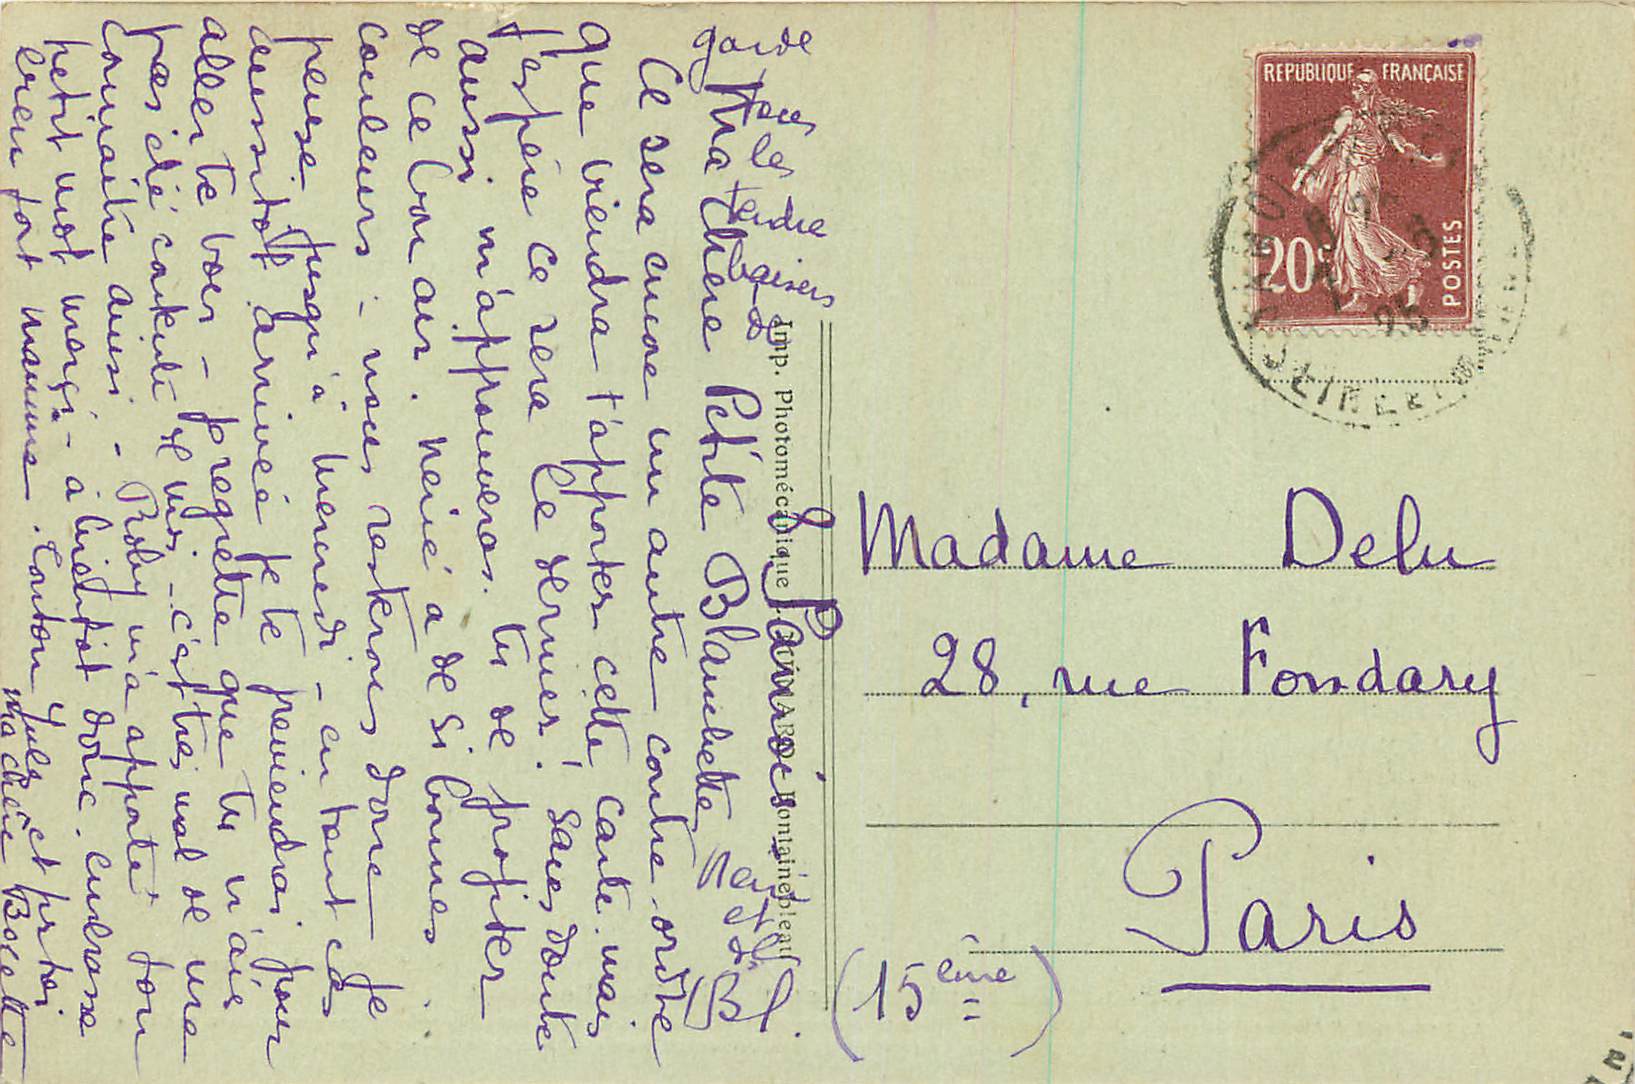 Ma Chère Petite Blanchette,
Ce sera encore un autre contre-ordre
que viendra t'apporter cette carte. mais
j'espère ce sera le dernier! sans doute
aussi m'approuveras. tu de profiter
de ce bon air. Néné a de si bonnes
couleurs - nous resterons donc je
pense jusqu'à mercredi - en tout cas
aussitôt arrivée je te préviendrai pour
aller te voir - je regrette que tu n'aies
pas été contente de moi - c'est très mal de me
connaître ainsi - Roby m'a apporté ton
petit mot merçi - à bientôt donc. embrasse
bien fort maman. Tonton Jules et pr toi
ma chère
garde
les
tendre
baisers
de
Néné
et de
Bl.
Imp. Photomécanique
Fontainebleau
REPUBLIQUE FRANÇAISE
20c
POSTES
Madame Delu
28, rue Fondary
Paris
(15ème)